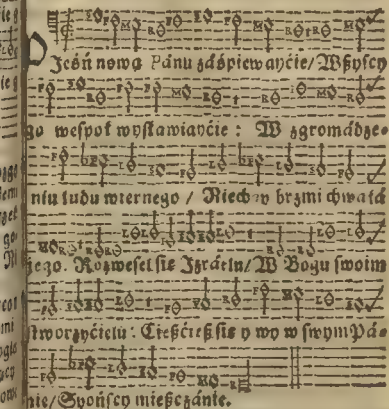 PJeśń nową Pánu záśpiewayćie/ Wszyscy
go wespoł wysławiayćie : W zgromádze-
niu ludu wiernego / Niech brzmi chwałá
jego. Rozwesel sie Izráelu/ W Bogu swoim
stworzyćielu: Cieszćież sie y wy w swym Pá-
nie/ Syońscy mieszczánie.